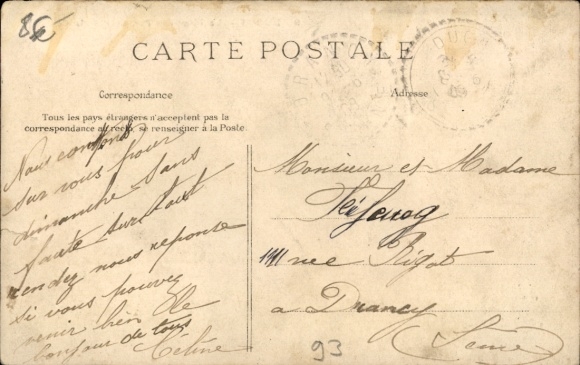 86
CARTE POSTALE
Correspondance
Adresse
Tous les pays étrangers n'acceptent pas la
correspondance au recto, se renseigner à la Poste.
Nous comptons
sur vous pour
dimanche sans
faute surtout
rendez nous reponse
si vous pouvez
venir bien
bonjour de tous
Céline
Monsieur et Madame
rue Rigot
a Drancy
Seine
93